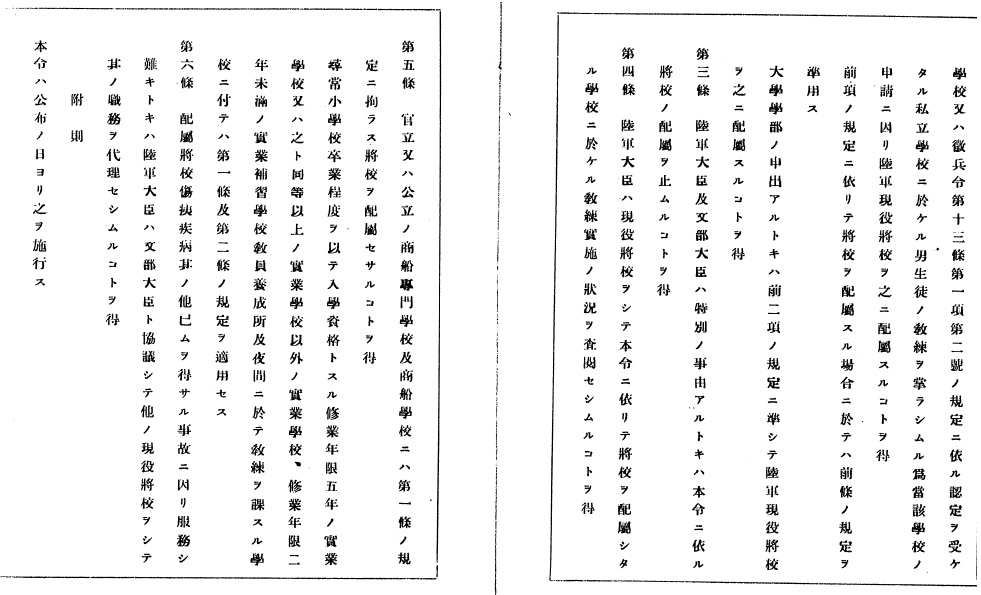 學校又ハ徵兵令第十三條第一項第二號ノ規定ニ依ル認定ヲ受ケ
タル私立學校ニ於ケル男生徒ノ敎練ヲ掌ラシムル爲當該學校ノ
申請ニ因リ陸軍現役將校ヲ之ニ配屬スルコトヲ得
前項ノ規定ニ依リテ將校ヲ配屬スル場合ニ於テハ前條ノ規定ヲ
準用ス
大學學部ノ申出アルトキハ前二項ノ規定ニ準シテ陸軍現役將校
ヲ之ニ配屬スルコトヲ得
第三條 陸軍大臣及文部大臣ハ特別ノ事由アルトキハ本令ニ依ル
將校ノ配屬ヲ止ムルコトヲ得
第四條 陸軍大臣ハ現役將校ヲシテ本令ニ依リテ將校ヲ配屬シタ
ル學校ニ於ケル敎練實施ノ狀況ヲ査閱セシムルコトヲ得
第五條 官立又ハ公立ノ商船專門學校及商船學校ニハ第一條ノ規
定ニ拘ラス將校ヲ配屬セサルコトヲ得
尋常小學校卒業程度ヲ以テ入學資格トスル修業年限五年ノ實業
學校又ハ之ト同等以上ノ實業學校以外ノ實業學校、修業年限二
年未滿ノ實業補習學校敎員養成所及夜間ニ於テ敎練ヲ課スル學
校ニ付テハ第一條及第二條ノ規定ヲ適用セス
第六條 配屬將校傷痍疾病其ノ他已ムヲ得サル事故ニ因リ服務シ
難キトキハ陸軍大臣ハ文部大臣ト協議シテ他ノ現役將校ヲシテ
其ノ職務ヲ代理セシムルコトヲ得
附則
本令ハ公布ノ日ヨリ之ヲ施行ス